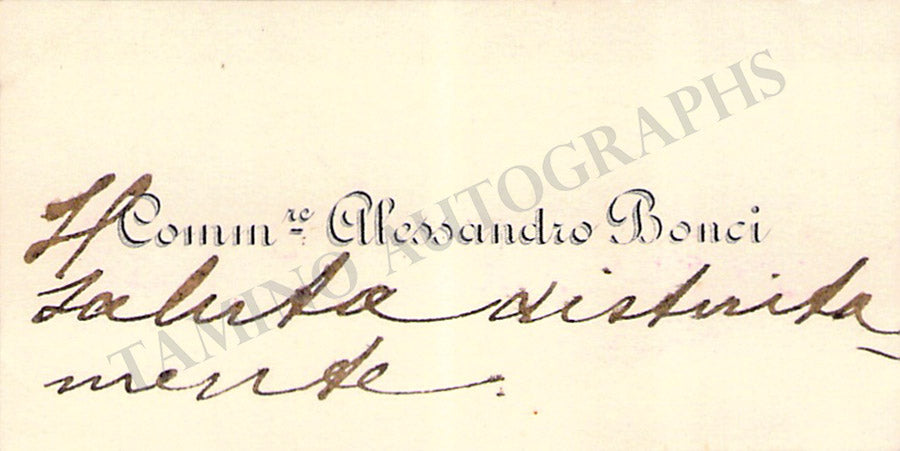 Il Comm.re Alessandro Bonci
saluta distinta-
mente.
TAMINO AUTOGRAPHS